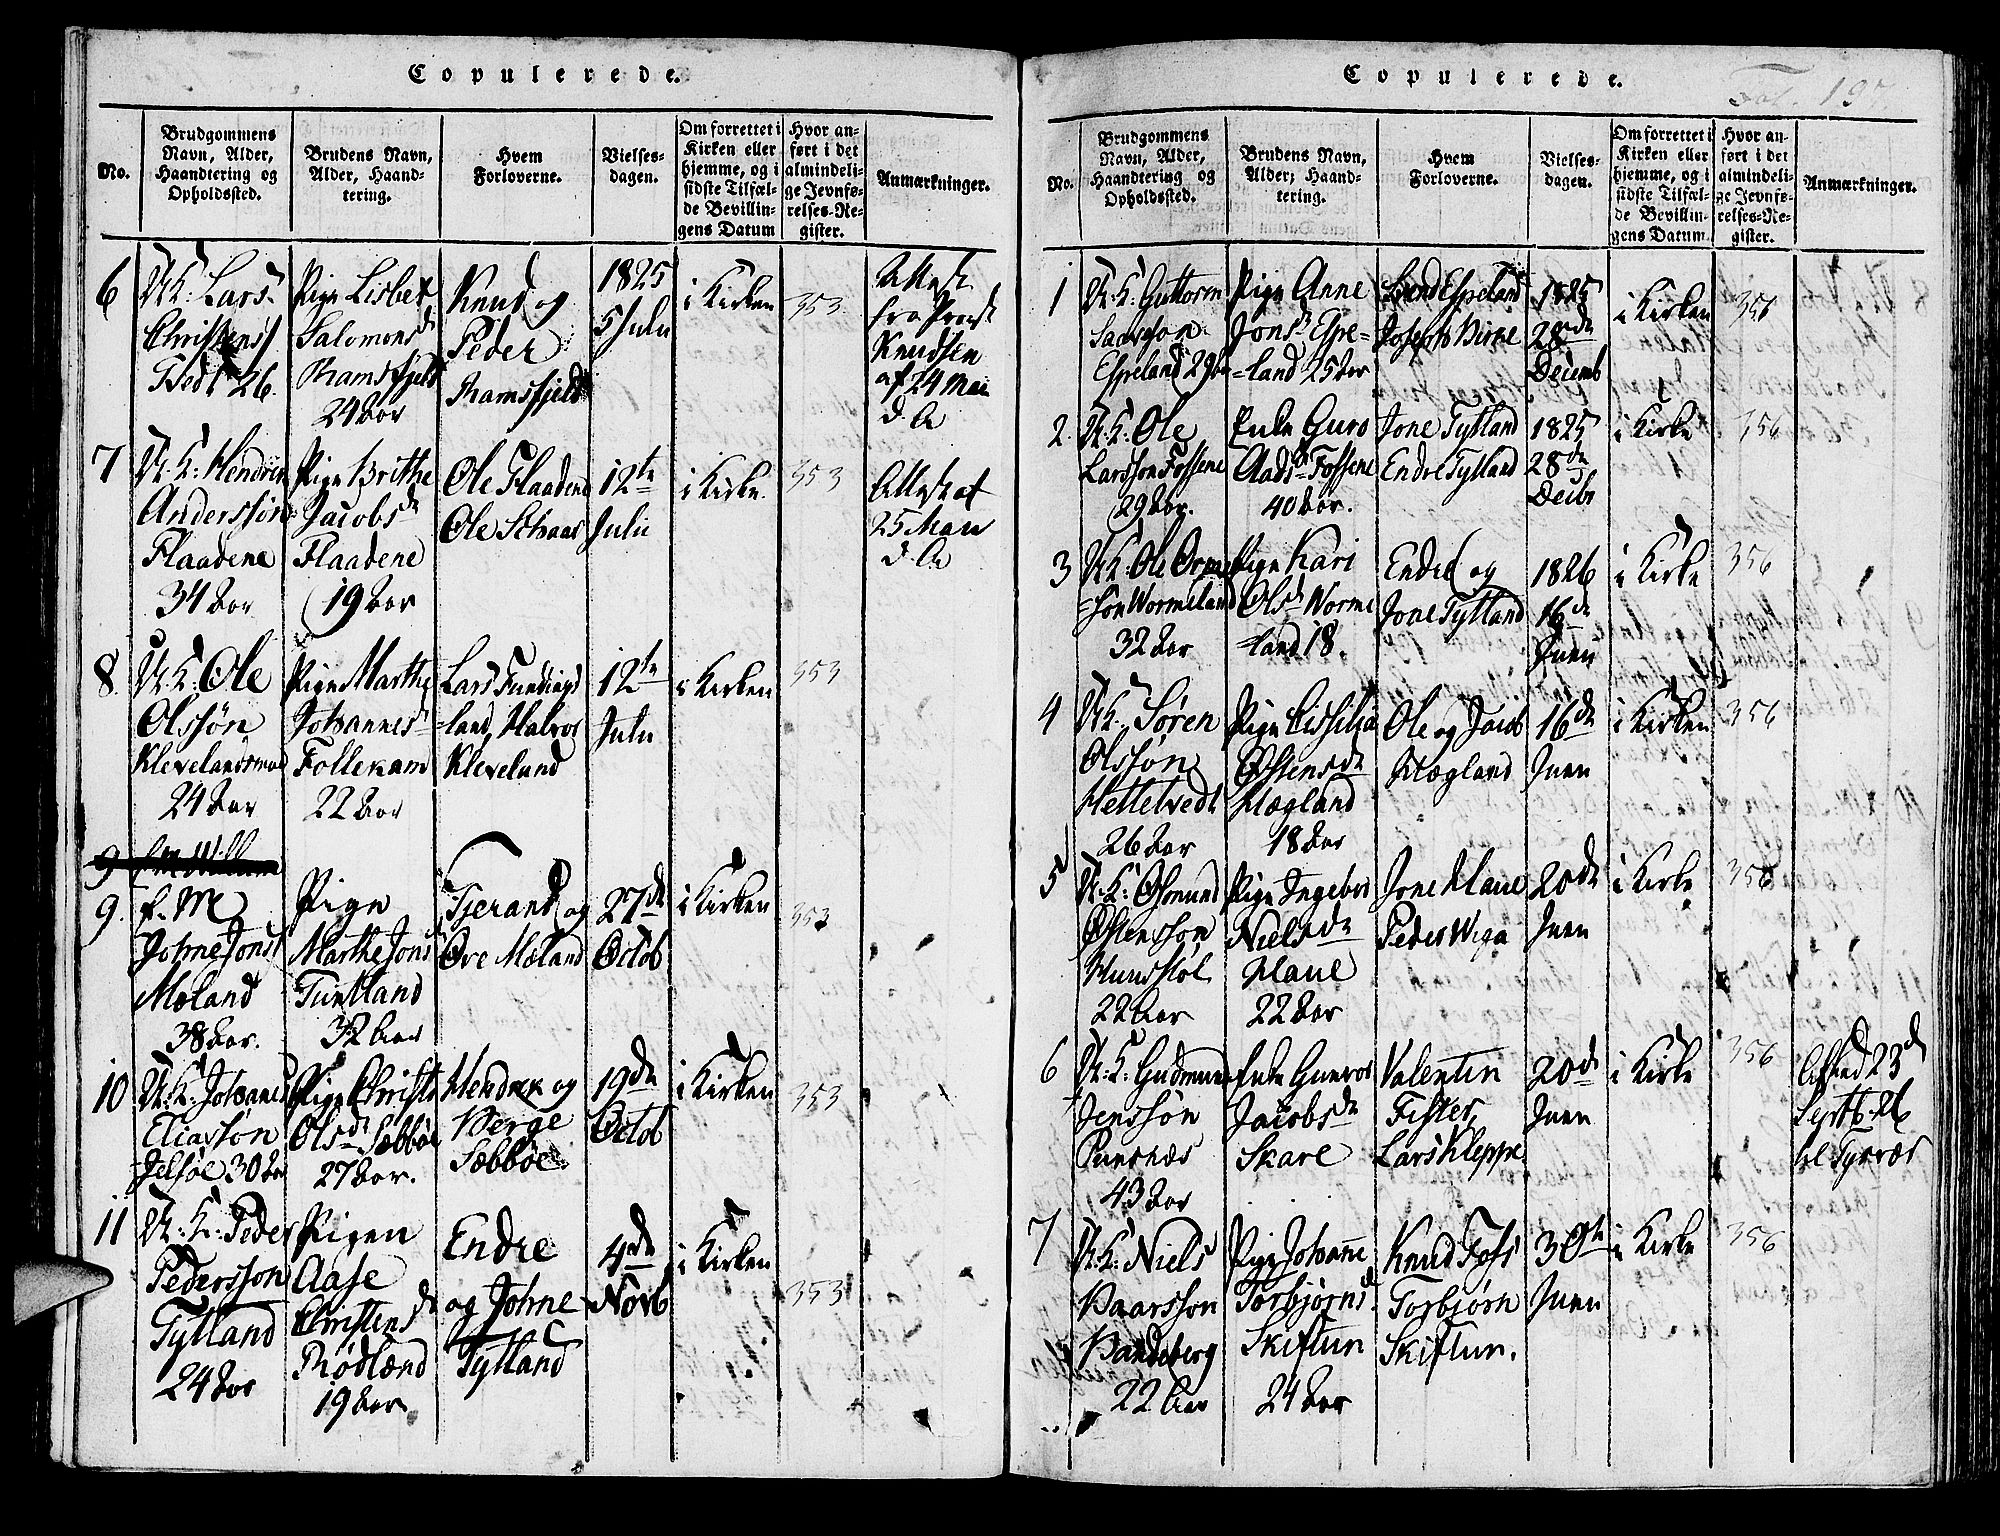 Copulerede.
No.
Brudgommens
Navn, Alder,
Haandtering og
Opholdssted.
Brudens Navn,
Alder, Haand-
tering.
Hvem
Forloverne.
Vielses-
dagen.
Om forrettet i
Kirken eller
hjemme, og i
sidste Tilfæl-
de Bevillin-
gens Datum
Hvor an-
ført i det
almindeli-
ge Jevnfø-
relses-Re-
gister.
Anmærkninger.
6
U: K: Lars
Christens
26.
Pige Lisbet
Salomonsd
Ramsfjeld
24 Aar
Knud og
Peder
Ramsfjeld
1825
5 Julii
i Kirken
353
Attest
fra Provst
Knudsen
af 24 Mai
d. A
7
U. K: Hendrik
Anderssøn
Flaadene
34 Aar
Pige Brithe
Jacobsd
Flaadene
19 Aar
Ole Flaadene
Ole
12te
Julii
i Kirke
353
Attest af
25 Mai
d. A
8.
U. K: Ole
Olssøn
24 Aar
Pige Marthe
Johannesd
Follekam
22 Aar
Lars
land, Halvor
Kleveland
12te
Julii
i Kirken
353
9
9.
E. M
Johne Jons
Mæland
38 Aar.
Pige
Marthe Jonsd
Tuntland
32 Aar
Tjerand og
Ove Mæland
27de
Octob
i Kirken
353
10
U. K: Johanes
Eliassøn
Jelsøe 30 Aar
Pige Christi
Olsd Sæbbøe
27 Aar.
og
Børge
Sæbbøe
19de
Octob
i Kirken
353
11
U. K: Peder
Pedersson
Tytland
24 Aar
Pigen
Aase
Christensd
Rødland
19 Aar
Endre
og Johne
Tytland
4de
Novb
i Kirken
353
Copulerede.
Fol. 197.
No.
Brudgommens
Navn, Alder,
Haandtering og
Opholdssted.
Brudens Navn,
Alder, Haand-
tering.
Hvem
Forloverne.
Vielses-
dagen.
Om forrettet i
Kirken eller
hjemme, og i
sidste Tilfæl-
de Bevillin-
gens Datum.
Hvor an-
ført i det
almindeli-
ge Jevnfø-
relses-Re-
gister.
Anmærkninger.
1
U. K: Guttorm
Espeland 29 Aar
Pige Anne
Jonsd Espe-
-land 25 Aar
Espeland
Joseph Birke
1825
28de
Decemb
i Kirken
356
2.
U. K: Ole
Larsson Fossene
29 Aar.
Enke Guro
Aadsd Fossene
40 Aar.
Jone Tytland
Endre Tytland
1825
28de
Decbr
i Kirke
356
3
U. K: Ole Orm
-søn Wormeland
32 Aar
Pige Kari
Olsd Worme
-land 18.
Endre og
Jone Tytland
1826
16de
Juni
i Kirke
356
4
U. K: Søren
Olssøn
Hettelvedt
26 Aar
Pige Cissilia
Østensd
Hægland
18 Aar
Ole og Jacob
Hægland
16de
Juni
i Kirken
356
5
U. K: Osmund
Østensson
22 Aar
Pige Ingebor
Nielsde
Haue
22 Aar
Jone Haue
Peder Wiga
20de
Juni
i Kirke
356
6
U. K: Gudmun
Jenssøn
43 Aar
Enke Gunvor
Jacobsde
Skare
Valentin
Fister,
Lars Kleppe
20de
Juni
i Kirke
356
23d
Septb. 26
til Tysvær
7
U. K: Niels
Baarsson
Bandeberg
22 Aar
Pige Johanne
Torbjørnsd.
Skiftun
24 Aar
Knud Foss
Torbjørn
Skiftun.
30te
Juni
i Kirke
356